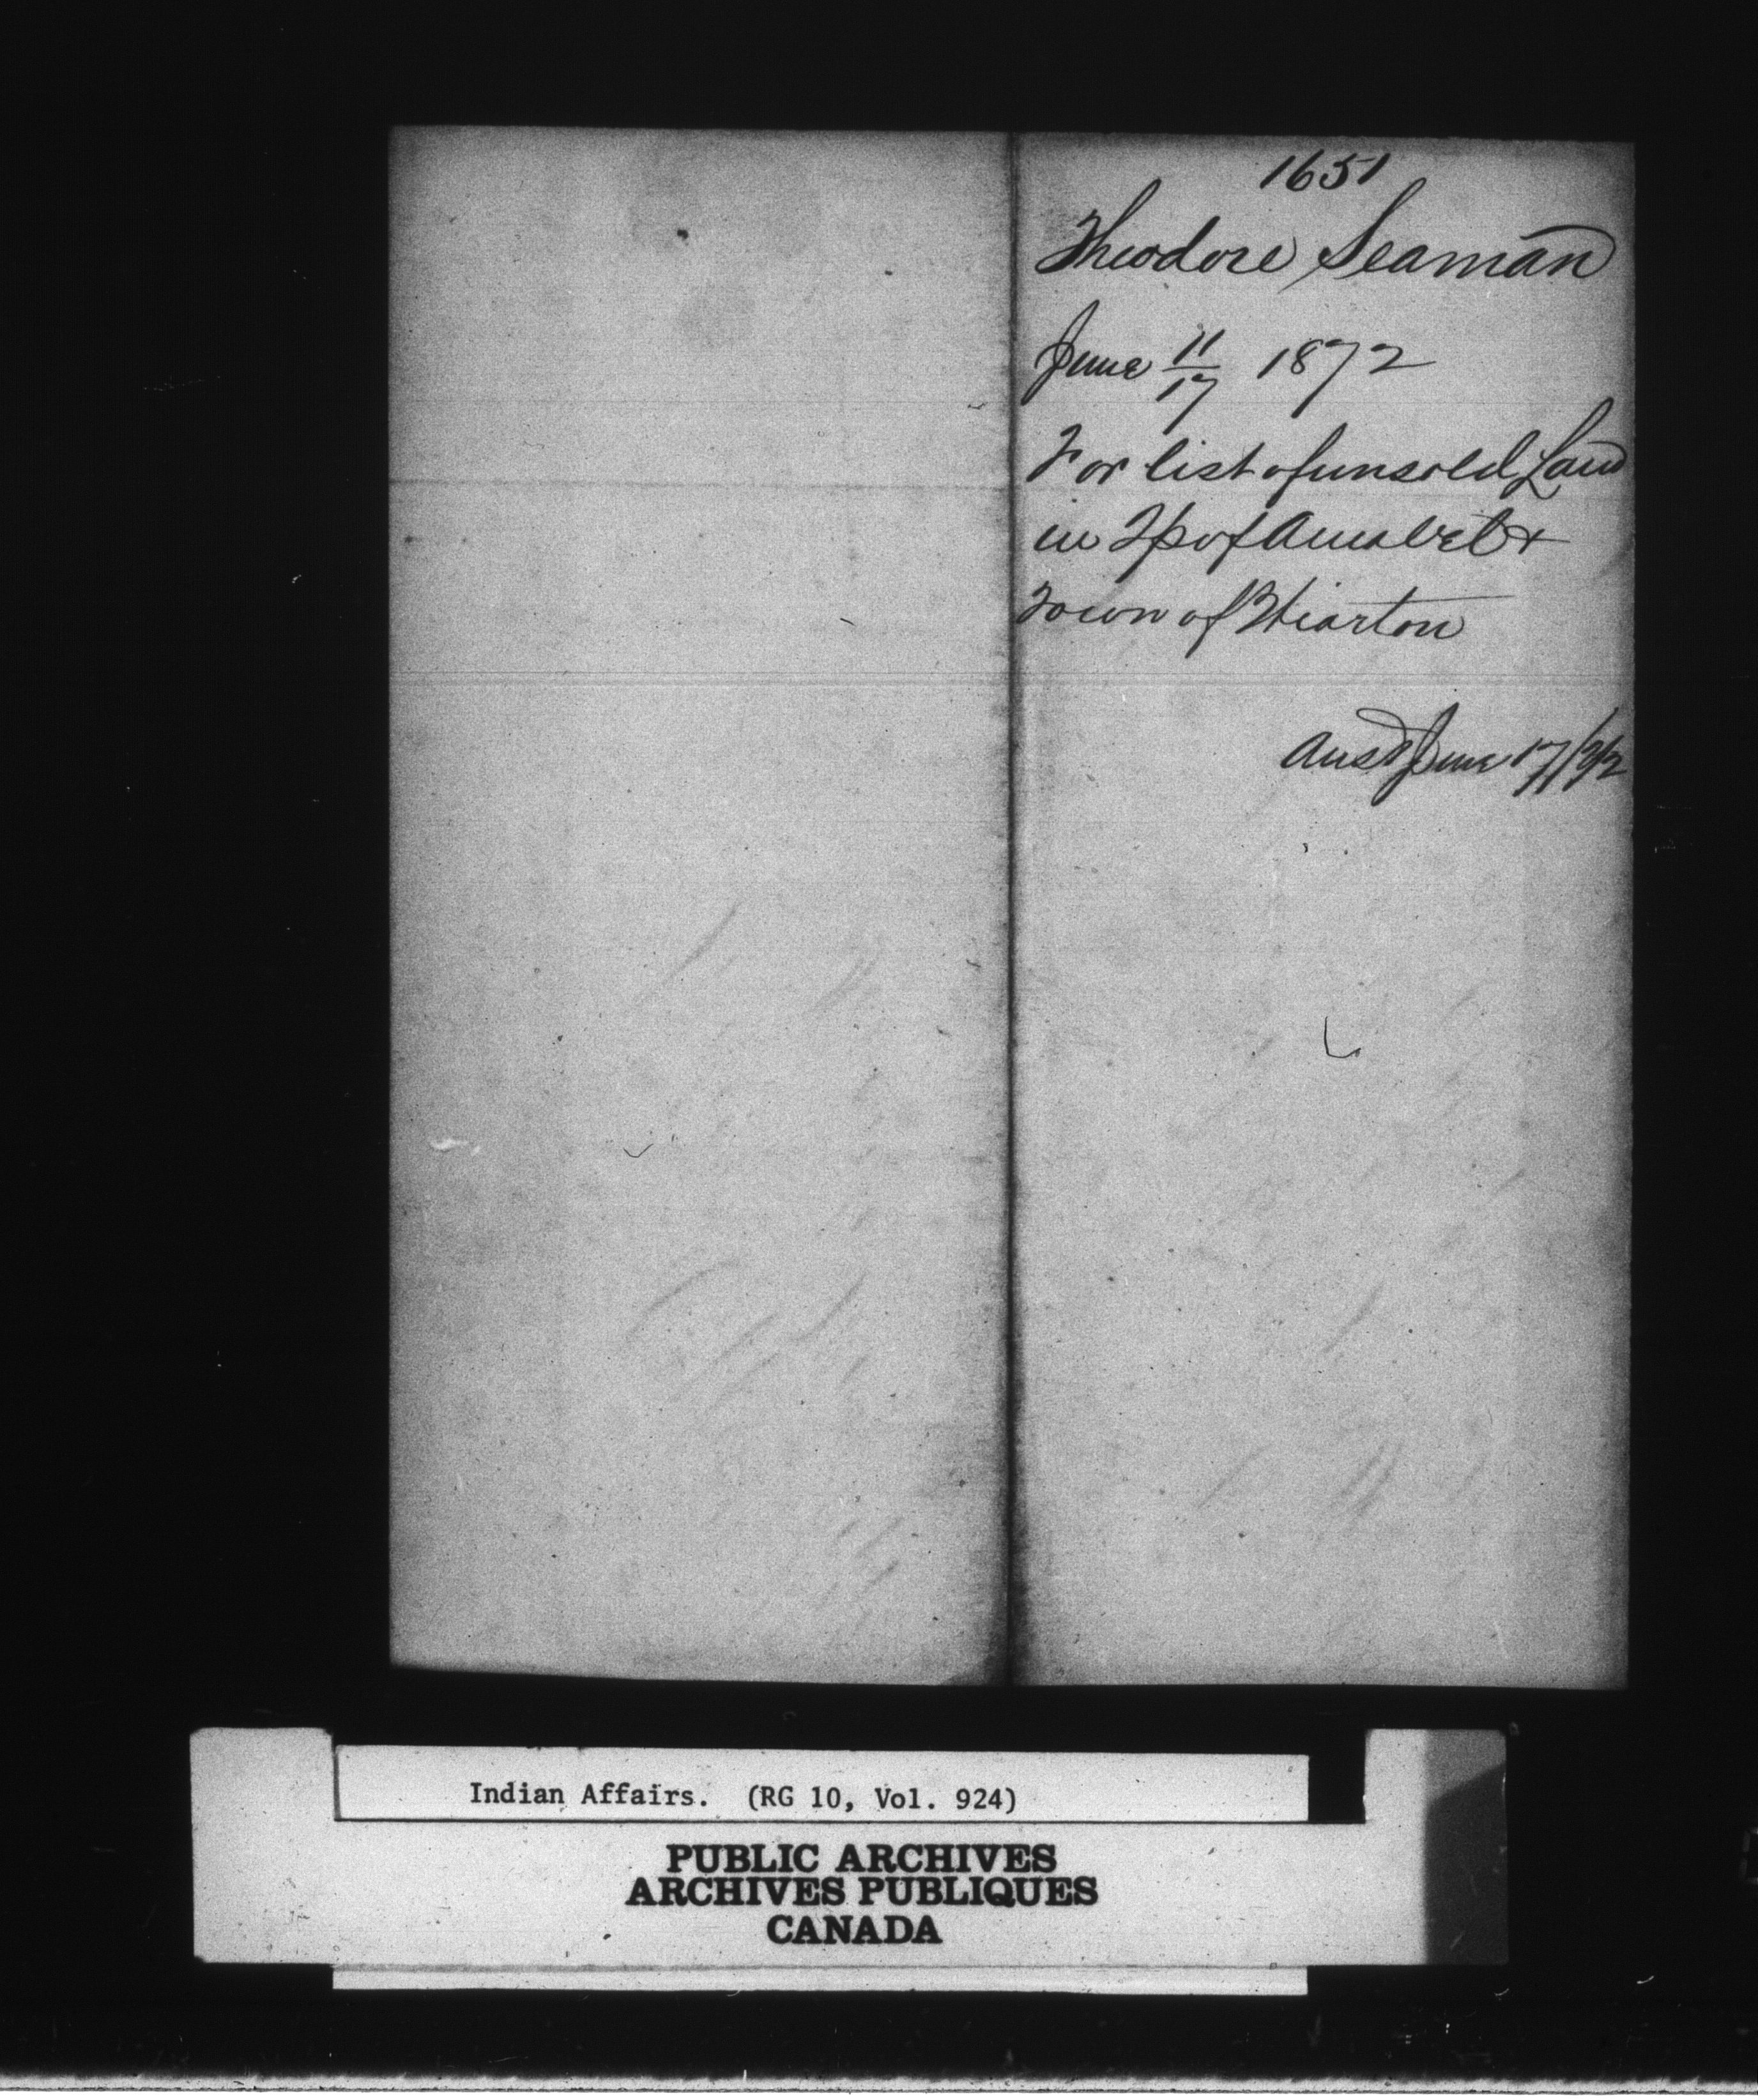 1651
Theodore Seaman
June 11/17 1872
For list of unsold Land
in Tp of Amabel &
Town of Wiarton
Ansd June 17/72
Indian Affairs. (RG 10, Vol. 924)
PUBLIC ARCHIVES
ARCHIVES PUBLIQUES
CANADA